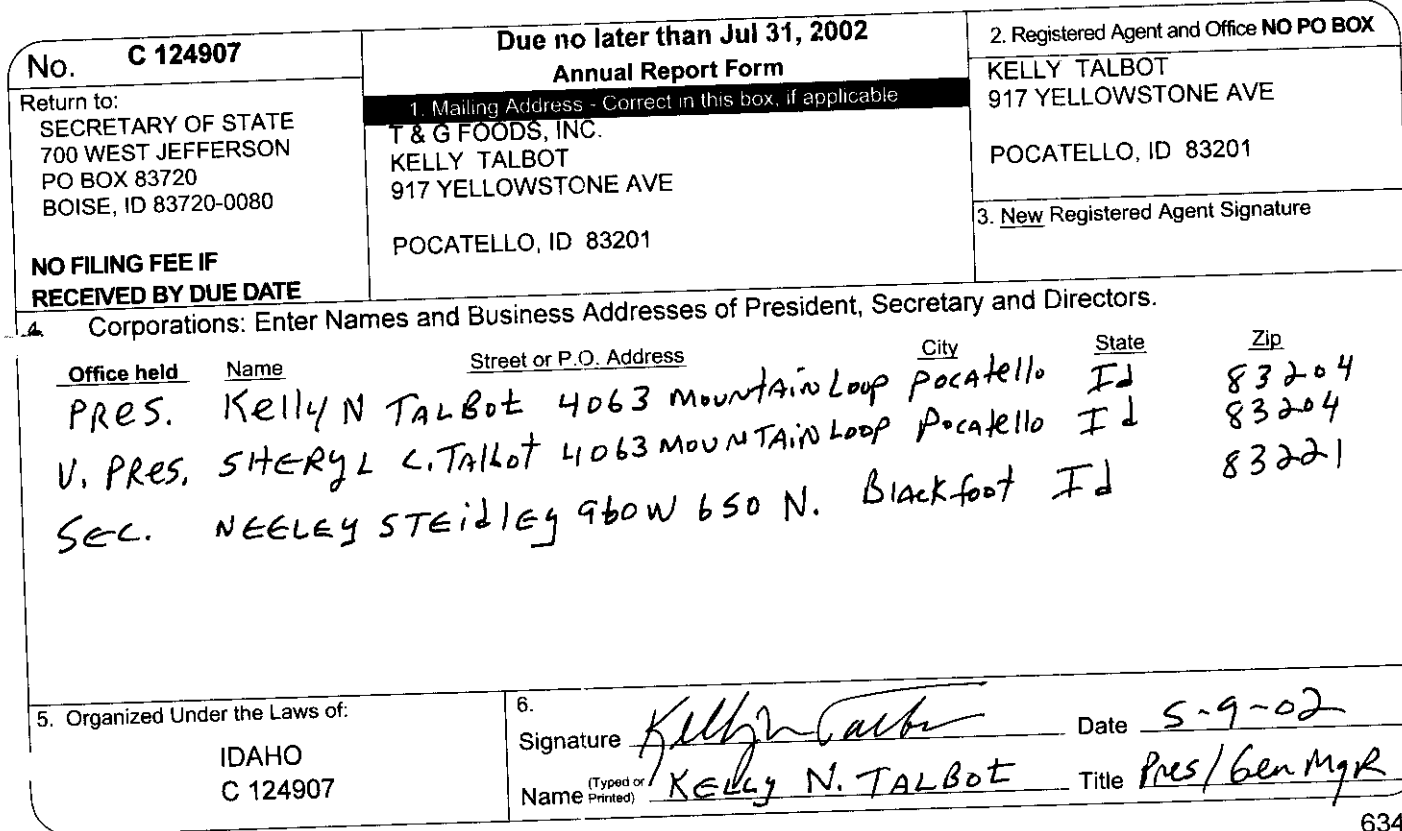 No. C 124907
Return to:
SECRETARY OF STATE
700 WEST JEFFERSON
PO BOX 83720
BOISE, ID 83720-0080
NO FILING FEE IF
RECEIVED BY DUE DATE
Due no later than Jul 31, 2002
Annual Report Form
1. Mailing Address - Correct in this box, if applicable
T & G FOODS, INC.
KELLY TALBOT
917 YELLOWSTONE AVE
POCATELLO, ID 83201
2. Registered Agent and Office NO PO BOX
KELLY TALBOT
917 YELLOWSTONE AVE
POCATELLO, ID 83201
3. New Registered Agent Signature
4. Corporations: Enter Names and Business Addresses of President, Secretary and Directors.
Office held Name Street or P.O. Address City State Zip
PRES. Kelly N TALBot 4063 MountAin Loop pocAtello Id 83204
V. PRes. SHERyL C. TAlbot 4063 MOUNTAiN Loop Pocatello Id 83204
SEC. NEELEY STEidlEy 960W 650 N. BlAckfoot Id 83221
5. Organized Under the Laws of:
IDAHO
C 124907
6.
Signature Kelly N Talbot Date 5-9-02
Name (Typed or Printed) KELLy N. TALBOt Title Pres/Gen MgR
634